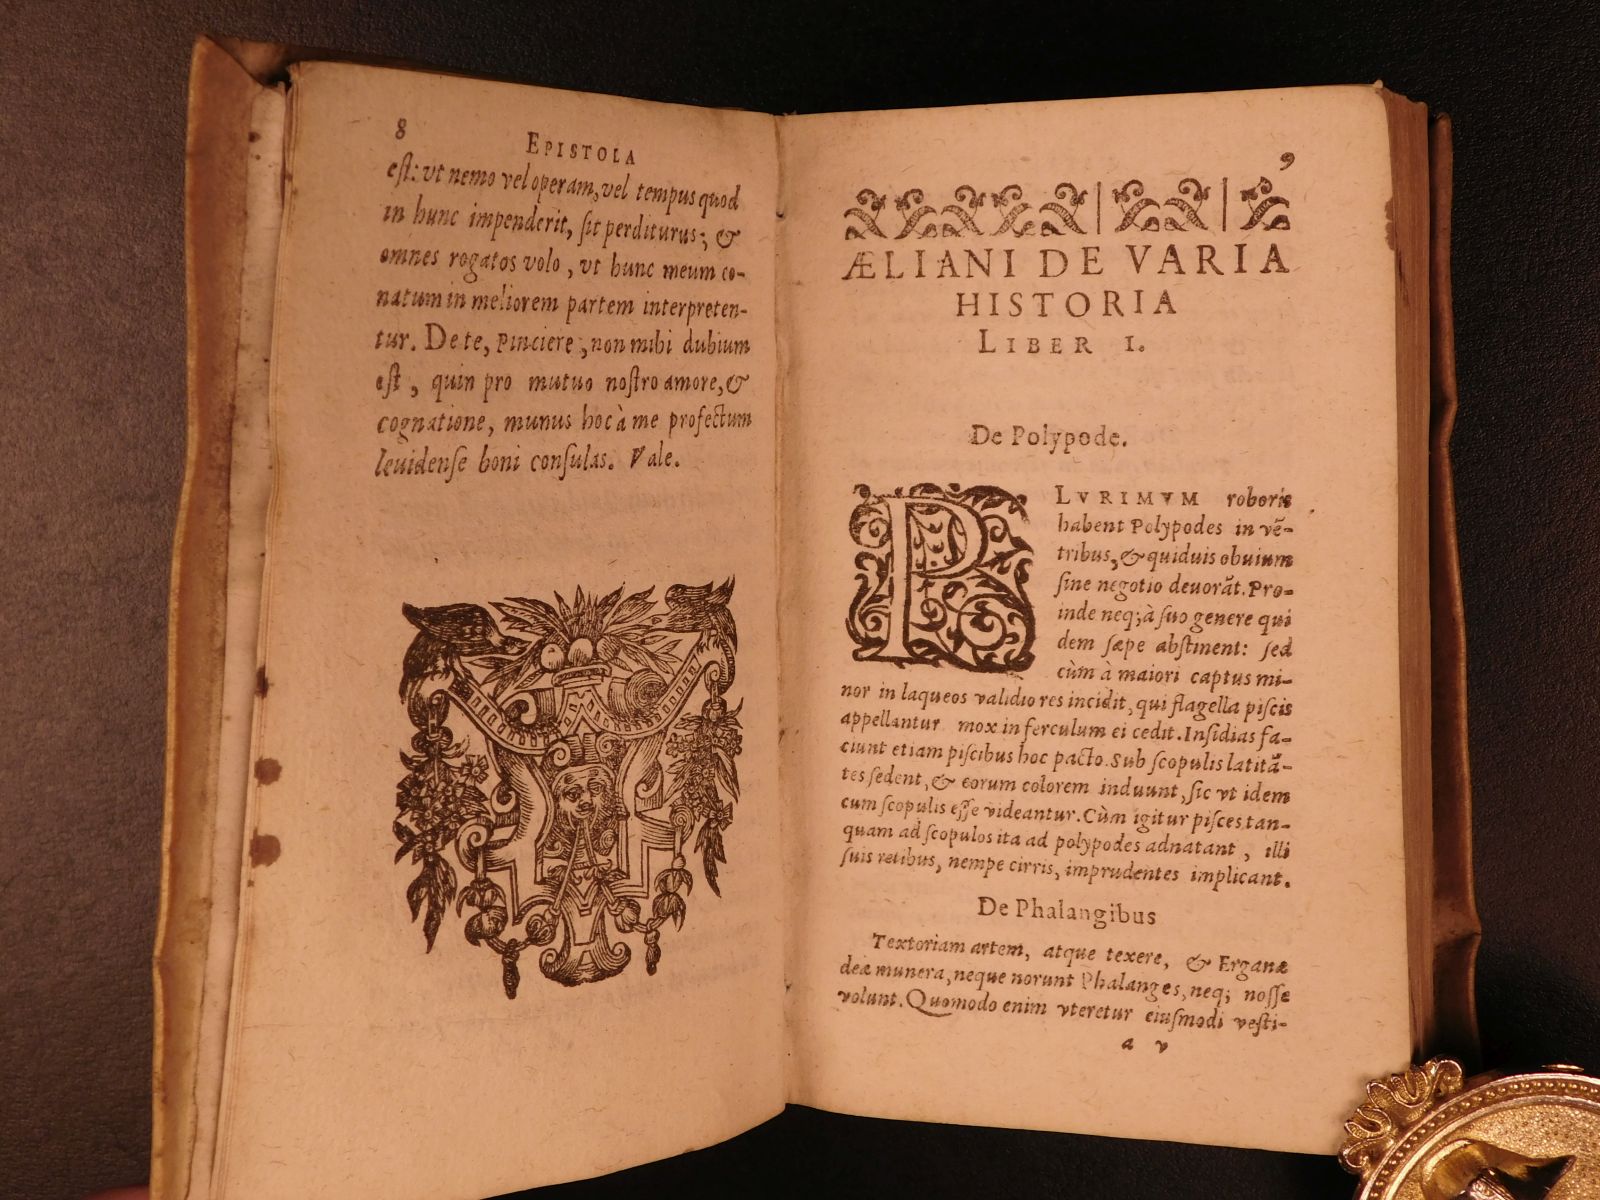 8
EPISTOLA
est: vt nemo vel operam, vel tempus quod
in hunc impenderit, sit perditurus; &
omnes rogatos volo, vt hunc meum co-
natum in meliorem partem interpreten-
tur. De te, Pinciere, non mihi dubium
est, quin pro mutuo nostro amore, &
cognatione, munus hoc à me profectum
leuidense boni consulas. Vale.
9
ÆLIANI DE VARIA
HISTORIA
LIBER I.
De Polypode.
PLVRIMVM roboris
habent Polypodes in vē-
tribus, & quiduis obuium
sine negotio deuorāt. Pro-
inde neq; à suo genere qui
dem sæpe abstinent: sed
cùm à maiori captus mi-
nor in laqueos validiores incidit, qui flagella piscis
appellantur mox in ferculum ei cedit. Insidias fa-
ciunt etiam piscibus hoc pacto. Sub scopulis latitā-
tes sedent, & eorum colorem induunt, sic vt idem
cum scopulis esse videantur. Cùm igitur pisces tan-
quam ad scopulos ita ad polypodes adnatant, illi
suis retibus, nempe cirris, imprudentes implicant.
De Phalangibus
Textoriam artem, atque texere, & Erganæ
deæ munera, neque norunt Phalanges, neq; nosse
volunt. Quomodo enim vteretur eiusmodi vesti-
a v